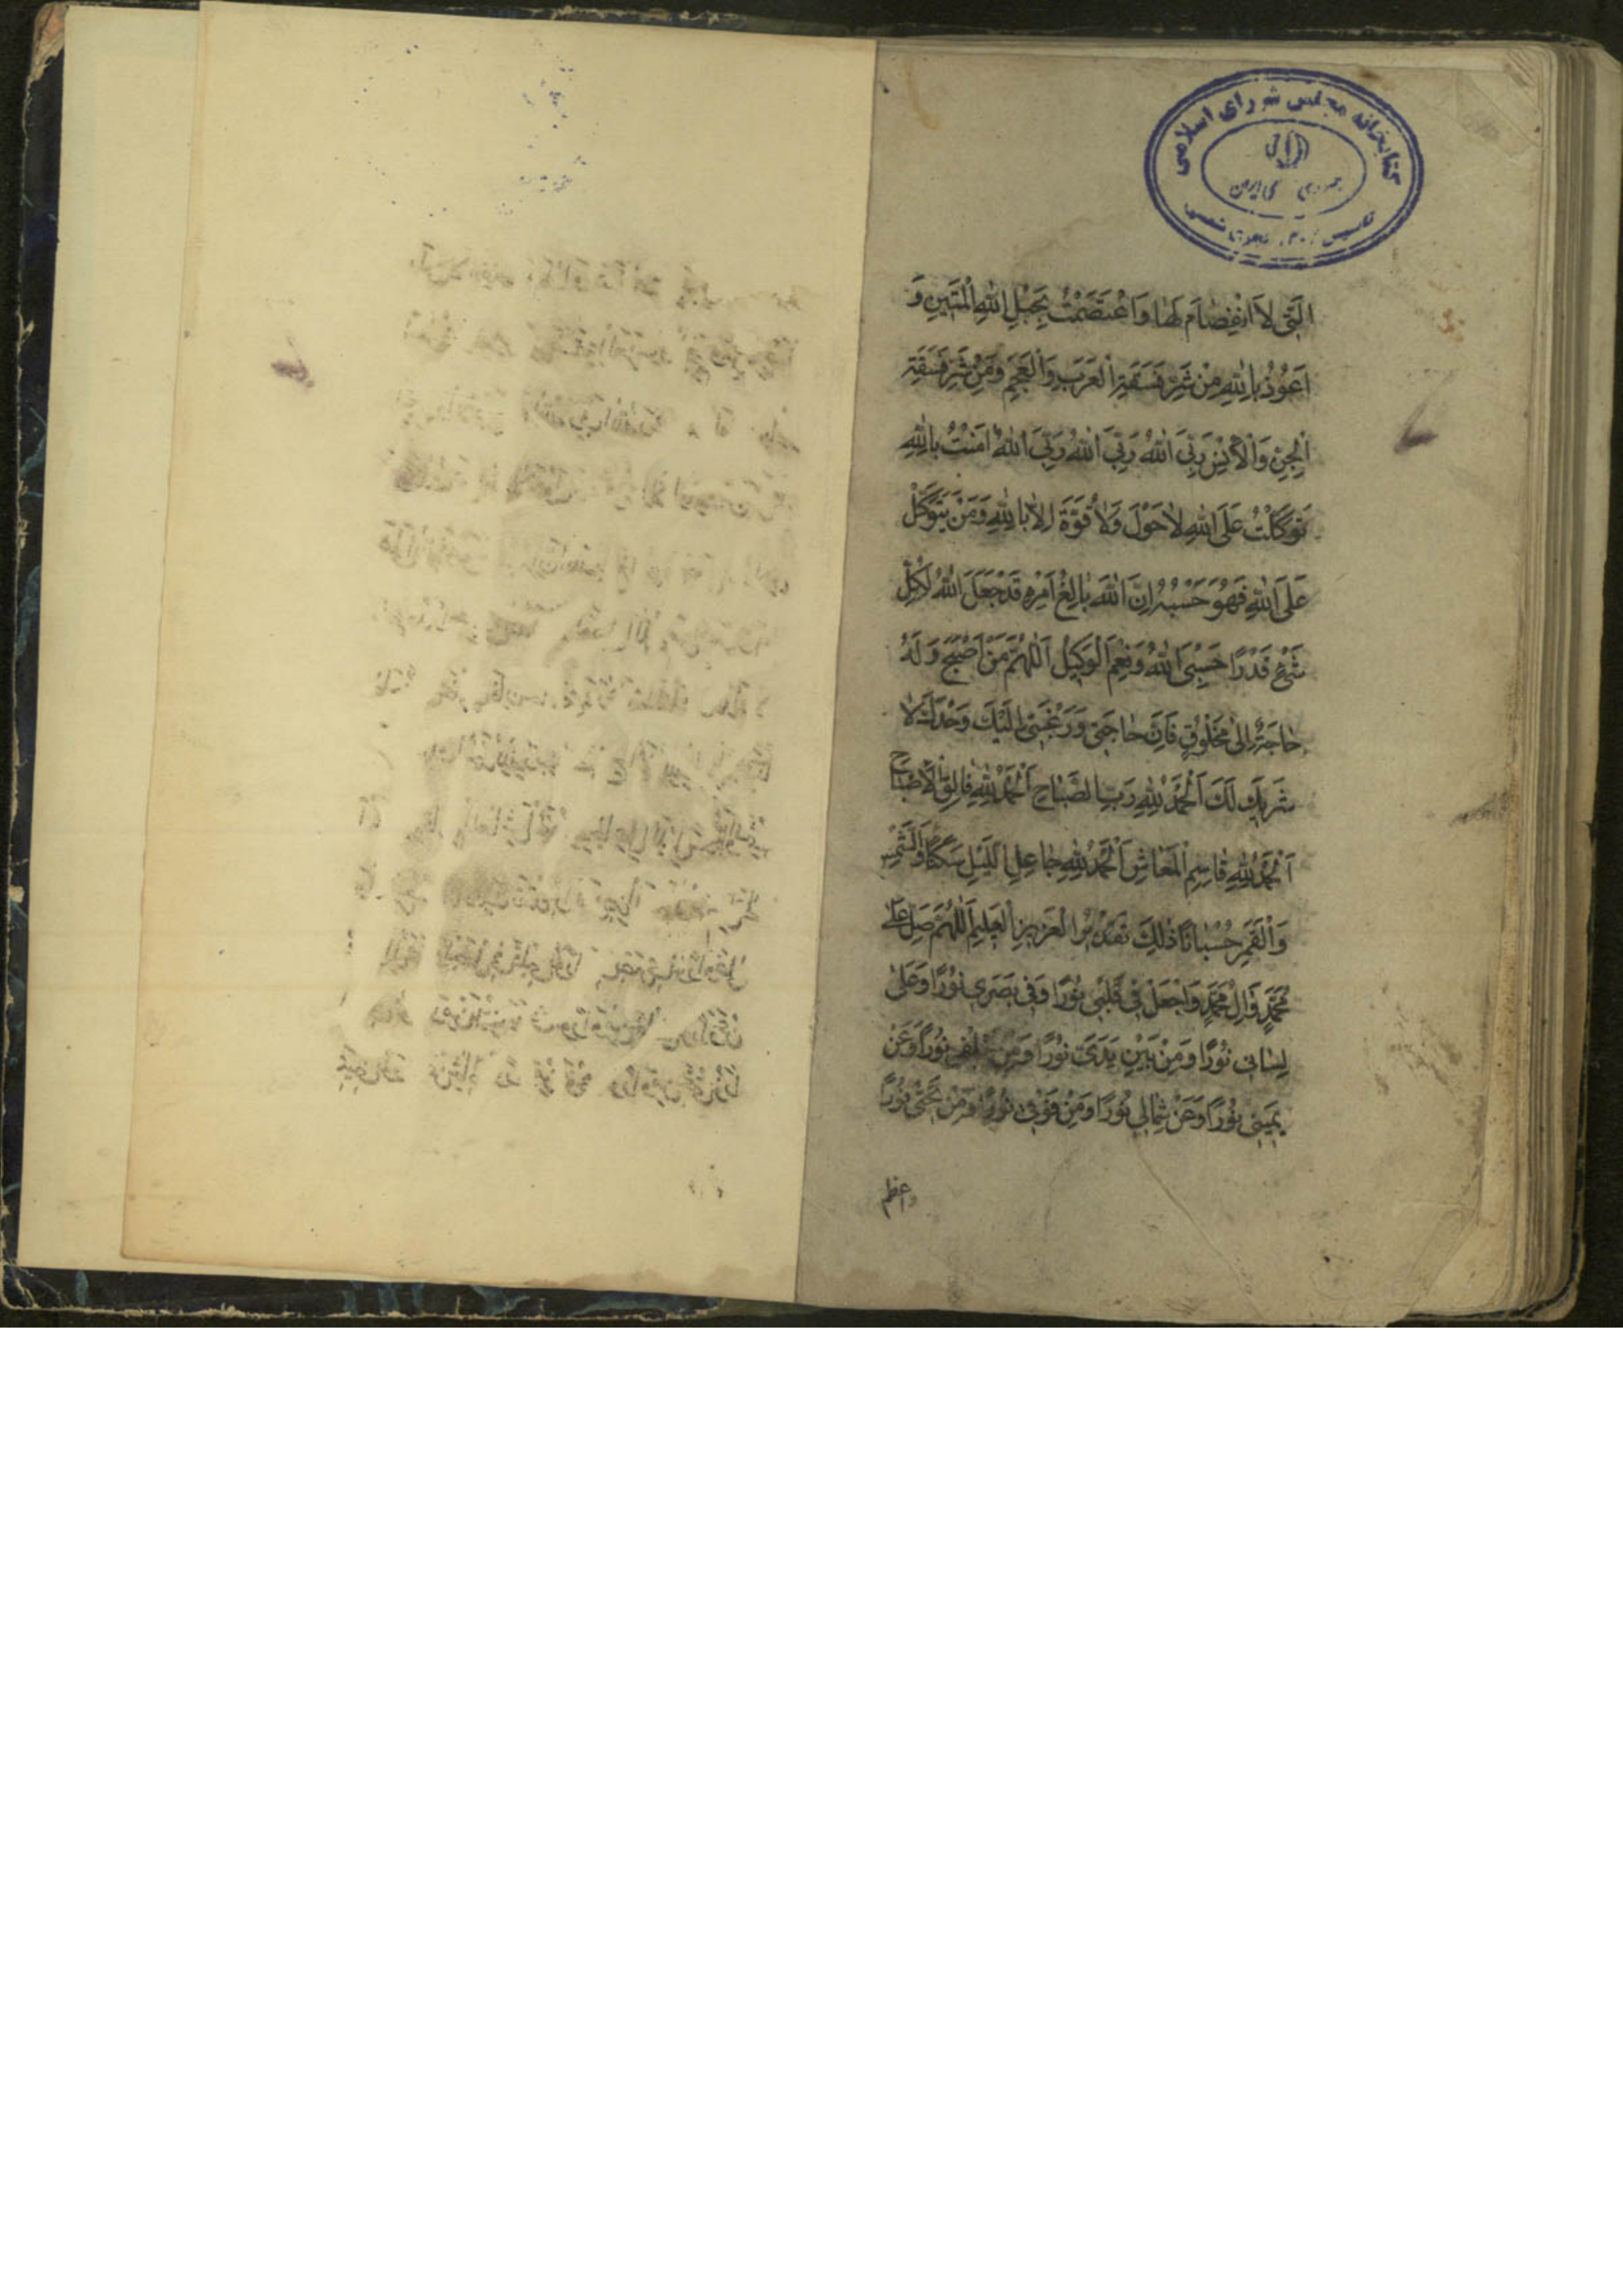 كتابخانه مجلس شورای اسلامی
الَّتِی لاَ انْفِصٰامَ لَهٰا وَاعْتَصَمْتُ بِحَبْلِ اللّٰهِ الْمَتٖينِ وَ
اَعُوذُ بِاللّٰهِ مِنْ شَرِّ فَسَقَةِ الْعَرَبِ وَالْعَجَمِ وَمِنْ شَرِّ فَسَقَةِ
الْجِنِّ وَالْاِنْسِ رَبِّیَ اللّٰهُ رَبِّیَ اللّٰهُ رَبِّیَ اللّٰهُ اٰمَنْتُ بِاللّٰهِ
تَوَكَّلْتُ عَلَی اللّٰهِ لاٰ حَوْلَ وَلاٰ قُوَّةَ اِلاّٰ بِاللّٰهِ وَمَنْ يَتَوَكَّلْ
عَلَی اللّٰهِ فَهُوَ حَسْبُهُ اِنَّ اللّٰهَ بٰالِغُ اَمْرِهِ قَدْ جَعَلَ اللّٰهُ لِكُلِّ
شَیْءٍ قَدْرًا حَسْبِیَ اللّٰهُ وَنِعْمَ الْوَكٖيلُ اَللّٰهُمَّ مَنْ اَصْبَحَ وَلَهُ
حٰاجَةٌ اِلیٰ مَخْلُوقٍ فَاِنَّ حٰاجَتی وَرَغْبَتی اِلَيْكَ وَحْدَكَ لاٰ
شَرٖيكَ لَكَ اَلْحَمْدُ لِلّٰهِ رَبِّ الصَّبٰاحِ اَلْحَمْدُ لِلّٰهِ فٰالِقِ الْاِصْبٰاحِ
اَلْحَمْدُ لِلّٰهِ قٰاسِمِ الْمَعٰاشِ اَلْحَمْدُ لِلّٰهِ جٰاعِلِ اللَّيْلِ سَكَنًا وَالشَّمْسِ
وَالْقَمَرِ حُسْبٰانًا ذٰلِكَ تَقْدٖيرُ الْعَزٖيزِ الْعَلٖيمِ اَللّٰهُمَّ صَلِّ عَلیٰ
مُحَمَّدٍ وَاٰلِ مُحَمَّدٍ وَاجْعَلْ فٖی قَلْبٖی نُورًا وَفٖی بَصَرٖی نُورًا وَعَلیٰ
لِسٰانٖی نُورًا وَمِنْ بَيْنِ يَدَیَّ نُورًا وَمِنْ خَلْفٖی نُورًا وَعَنْ
يَمٖينٖی نُورًا وَعَنْ شِمٰالٖی نُورًا وَمِنْ فَوْقٖی نُورًا وَمِنْ تَحْتٖی نُورًا
واعظم